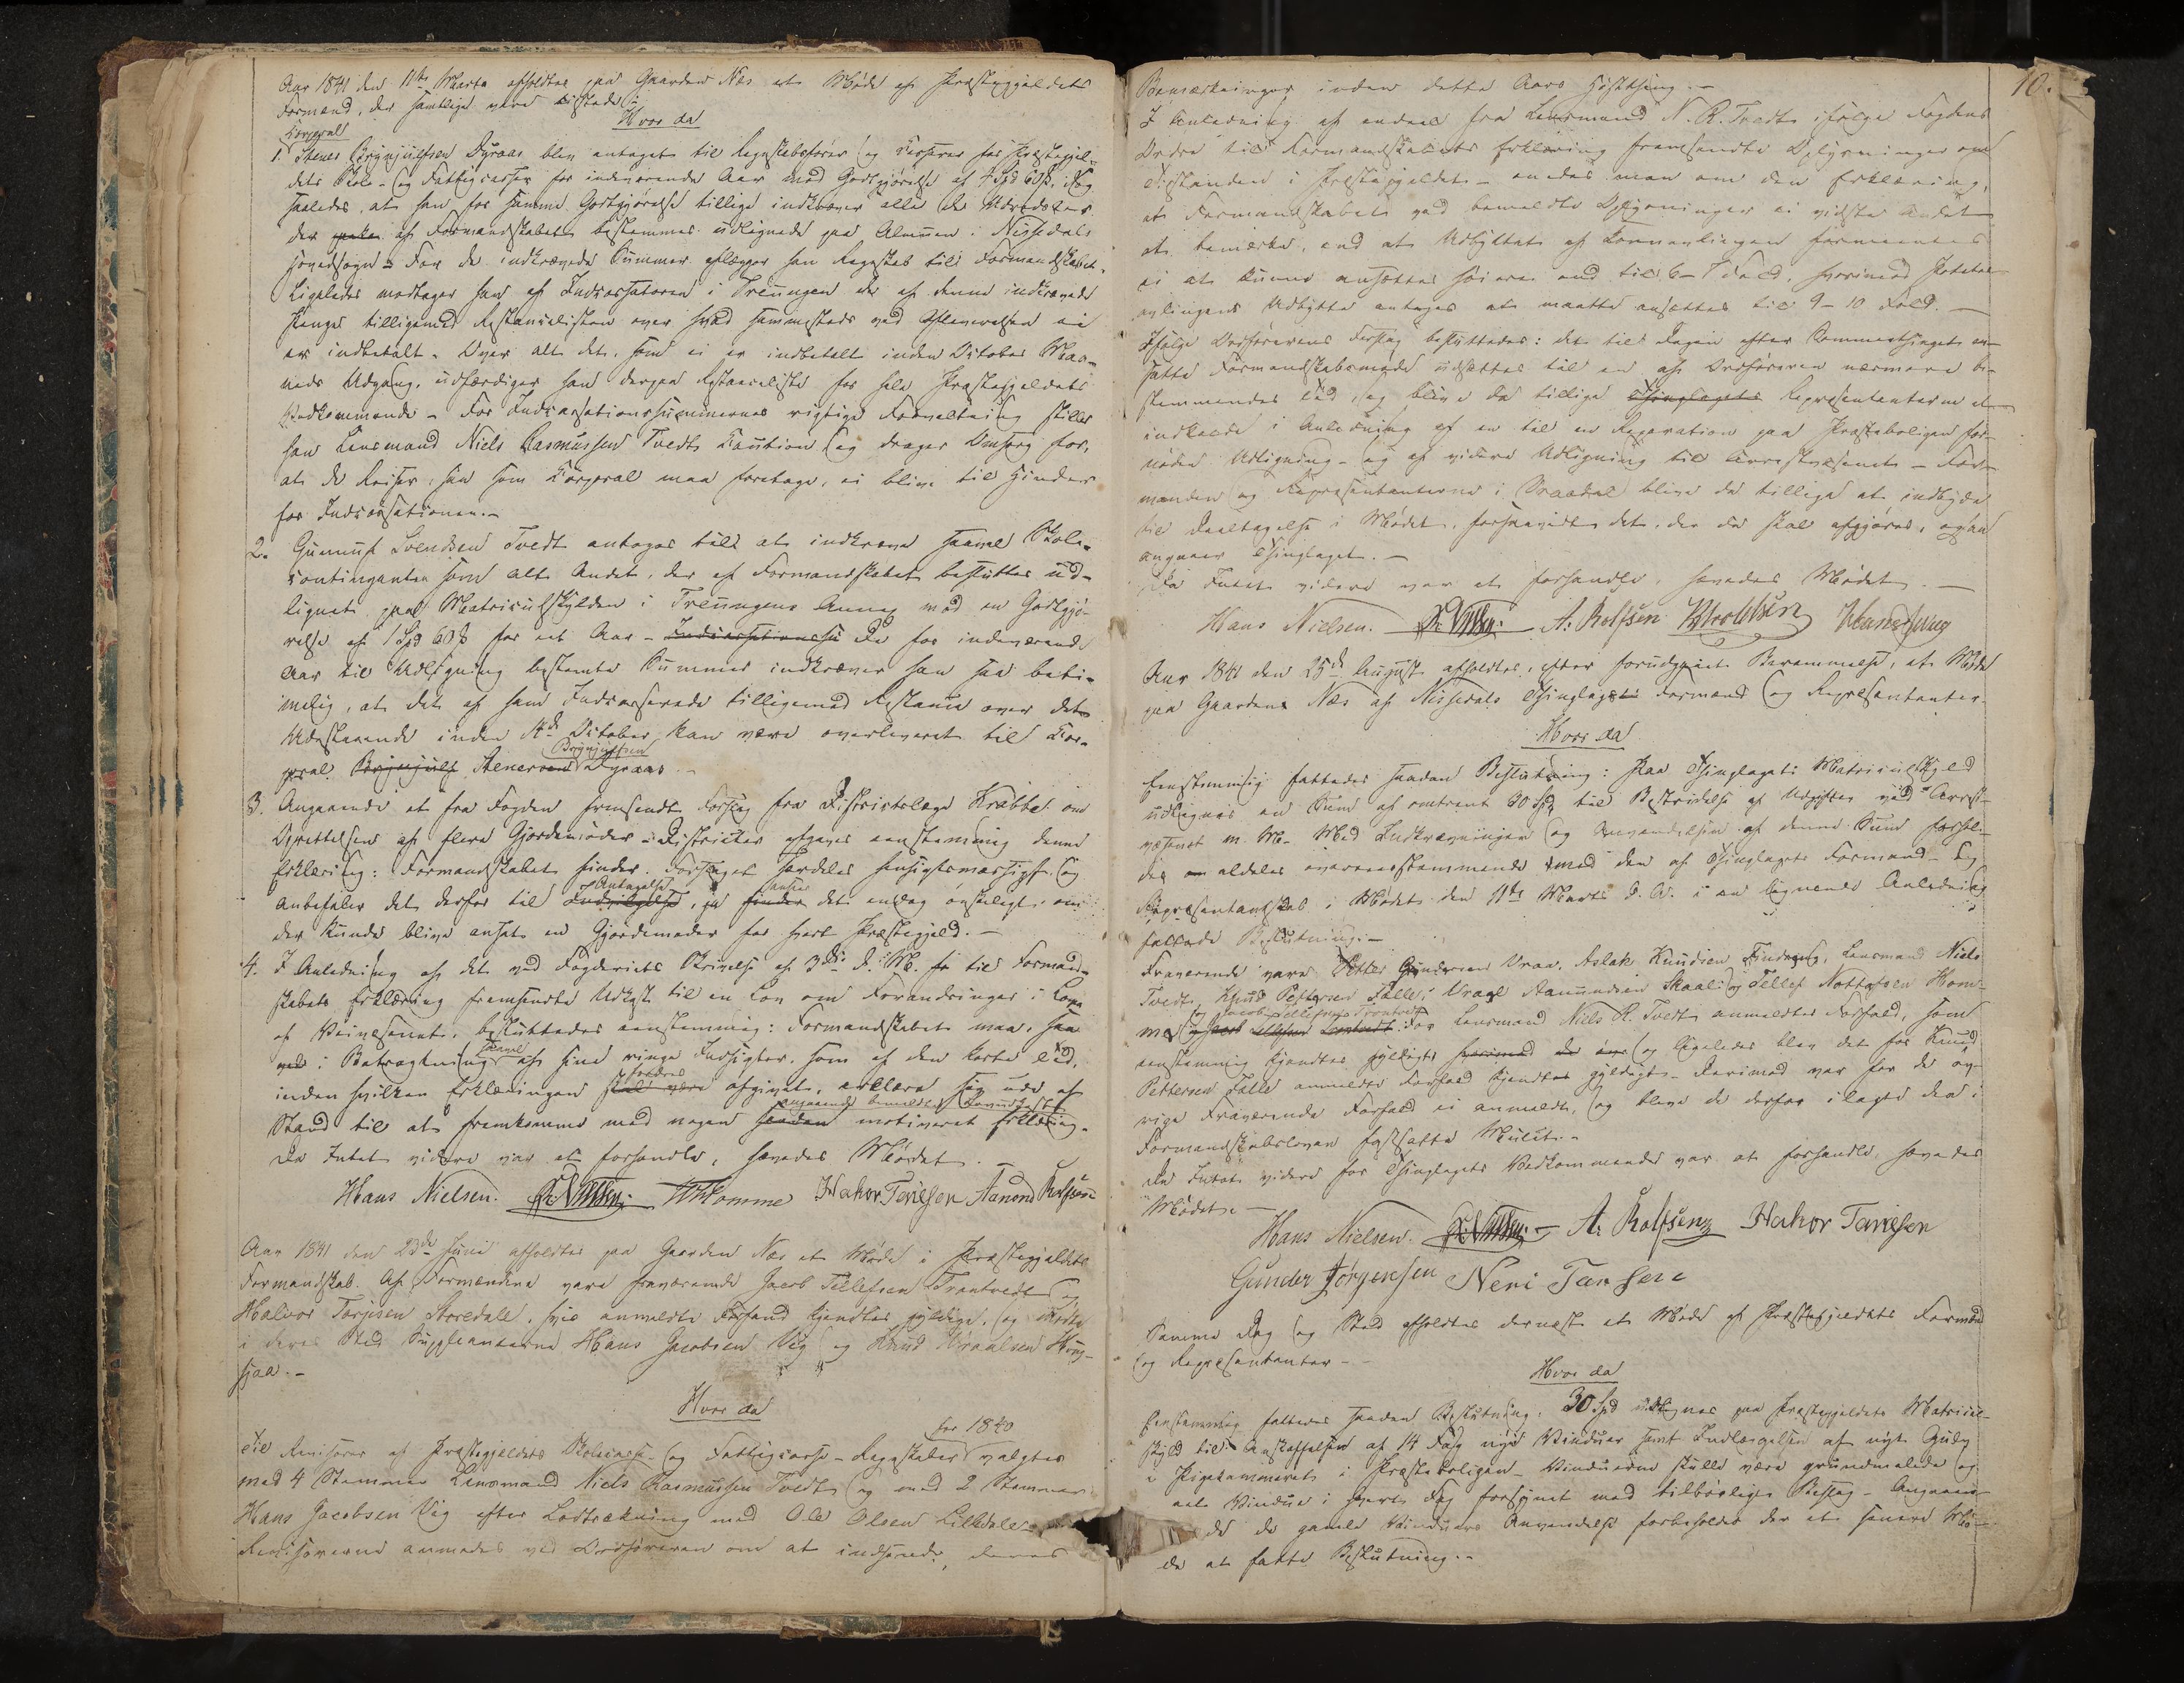 Aar 1841 den 11te Marts afholdtes paa Gaarden Næs et Møde af Præstegjeldets
Formænd, der samtlige vare tilstede:
Hvor da
Corporal
1. Stener Brynjulfsen Dyraas blev antaget til Regnskabsfører og Kasserer for Præstegjel-
dets Skole- og Fattigcasser for indeværende Aar mod Godtgjørelse af 4 Spd 60 s, dog
saaledes, at han for samme Godtgjørelse tillige indkræver alle de Udredsler
der af Formandskabet bestemmes udlignede paa Almuen i Nissedals
Hovedsogn - For de indkrævede Summer aflægger han Regnskab til Formandskabet.
Ligeledes modtager han af Indcassatoren i Treungen de af denne indkrævede
Penge tilligemed Restancelisten over hvad sammesteds ved Afleverelsen ei
er indbetalt. Over alt det, som ei er indbetalt inden October Maa-
neds Udgang, udfærdiger han derpaa Restanceliste for hele Præstegjeldets
Vedkommende - For Indcassationssummernes rigtige Forvaltning stiller
han Lensmand Niels Rasmussen Tvedt Caution og drager Omsorg for,
at de Reiser, han som Corporal maa foretage, ei blive til Hinder
for Indcassationen.-
2. Gunnuf Svendsen Tvedt antages til at indkræve saavel Skole-
contingenten som alt Andet, der af Formandskabet besluttes ud-
lignet paa Matriculskylden i Treungens Annex mod en Godtgjø-
relse af 1 Spd 60 s for et Aar - Indcassationens De for indeværende
Aar til Udligning bestemte Summer indkræver han saa beti-
melig, at det af ham Indcasserede tilligemed Restance over det
Udestaaende inden 14de October kan være overleveret til Cor-
Brynjulfsen
poral Brynjulf Stenersen Dyraas.-
3. Angaaende et fra Fogden fremsendt Forslag fra Districtslæge Krabbe om
Oprettelsen af flere Gjordemøder-Districter afgaves eenstemmig denne
Erklæring: Formandskabet finder Forslaget særdeles hensigtsmæssigt og
Antagelse anseer
anbefaler det derfor til Indvilgelse, ja finder det endog ønskeligt om
der kunde blive ansat en Gjordemoder for hvert Præstegjeld.-
4. I Anledning af det ved Fogderiets Skrivelse af 3die d. M. til Formand-
skabets Erklæring fremsendte Udkast til en Lov om Forandringer i Lov
af Veivæsenet, besluttedes eenstemmig: Formandskabet maa, saa
saavel
vel i Betragtning af sine ringe Indsigter, som af den korte Tid,
fordres
inden hvilken Erklæringen skal være afgivet, erklære sig ude af
angaaende bemeldte Lovudkast
Stand til at fremkomme med nogen saadan motiveret Erklæring.
Da Intet videre var at forhandle, hævedes Mødet.-
Hans Nielsen. Hakor Tarjesen Aanond Rolfsen
Aar 1841 den 23de Juni afholdtes paa Gaarden Næs et Møde i Præstegjeldets
Formandskab. Af Formændene vare fraværende Jacob Tellefsen Trontvedt og
Halvor Torjesen Storedale, hvis anmeldte Forfald kjendtes gyldige, og mødte
i deres Sted Suppleanterne Hans Jacobsen Vig og Knud Wraalsen Haug-
sjaa.-
Hvor da
for 1840
Til Revisorer af Præstegjeldets Skolecasse- og Fattigcasse-Regnskaber valgtes
med 4 Stemmer Lensmand Niels Rasmussen Tvedt og med 2 Stemmer
Hans Jacobsen Vig efter Lodtrækning med Ole Olsen Lilledale
Revisorerne anmodes ved Ordføreren om at indsende deres
10.
Bemærkninger inden dette Aars Høstthing.-
I Anledning af endeel fra Lensmand N. R. Tvedt ifølge Fogdens
Ordre til Formandskabets Erklæring fremsendte Oplysninger om
Tilstanden i Præstegjeldet - enedes man om den Erklæring,
at Formandskabet ved bemeldte Oplysninger ei vidste Andet
at bemærke, end at Udbyttet af Kornavlingen formeentes
ei at kunne ansættes høiere end til 6-7 Fold, hvorimod Potetes-
avlingens Udbytte antages at maatte ansættes til 9-10 Fold.-
Ifølge Ordførerens Forslag besluttedes: det til Dagen efter Sommerthinget an-
satte Formandskabsmøde udsættes til en af Ordføreren nærmere be-
stemmendes Tid, og blive da tillige Thinglagets Repræsentanterne at
indkalde i Anledning af en til en Reparation paa Præsteboligen for-
nøden Udligning - og af videre Udligning til Arrestvæsenet - For-
mænden og Repræsentanterne i Vraadal blive da tillige at indbyde
til Deeltagelse i Mødet, forsaavidt det, der da skal afgjøres,
angaaer Thinglaget.-
Da Intet videre var at forhandle, hævedes Mødet.-
Hans Nielsen. A. Rolfsen
Aar 1841 den 25de August afholdtes, efter forudgaaet Berammelse, et Møde
paa Gaarden Næs af Nissedals Thinglags Formænd og Repræsentanter.
Hvor da
Eenstemmig fattedes saadan Beslutning: Paa Thinglagets Matriculskyld
udlignes en Sum af omtrent 30 Spd, til Bestridelse af Udgifter ved Arrest-
væsenet m. M. Med Indkrævningen og Anvendelsen af denne Sum forhol-
des aldeles overeensstemmende med den af Thinglagets Formænd- og
Repræsentantskab i Mødet den 11te Marts d. A. i en lignende Anledning
fattede Beslutning.-
Fraværende vare Petter Gundersen Vraa, Aslak Knudsen Findreng, Lensmand Niels
Tvedt, Knud Pettersen Felle, Vraal Aanundsen Skaali og Tellef Nottolfsen Hom-
Jacob Tellefsen Trontvedt
me og Jacob Tellefsen Trontvedt. For Lensmand Niels R. Tvedt anmeldtes Forfald, som
eenstemmig kjendtes gyldigt hvorimod de øvr og ligeledes blev det for Knud
Pettersen Felle anmeldte Forfald kjendt gyldigt. Derimod var for de øv-
rige Fraværende Forfald ei anmeldt, og bleve de derfor ilagte den i
Formandskabsloven fastsatte Mulct.-
Da Intet videre for Thinglagets Vedkommende var at forhandle, hævedes
Mødet.-
Hans Nielsen. A. Rolfsen Hakor Tarjesen
Gunder Jørgensen Neri Tarjesen
Samme Dag og Sted afholdtes dernæst et Møde af Præstegjeldets Formænd
og Repræsentanter.-
Hvor da
Eenstemmig fattedes saadan Beslutning: 30 Spd udlignes paa Præstegjeldets Matricul-
skyld til Anskaffelsen af 14 Fag nye Vinduer samt Indlægelsen af nyt Gulv
i Pigekammeret i Præsteboligen - Vinduerne skulle være grundmalede og
eet Vindue i hvert Fag forsynet med tilbørligt Beslag - Angaaen-
de de gamle Vinduers Anvendelse forbeholdes der et senere Mø-
de at fatte Beslutning.-